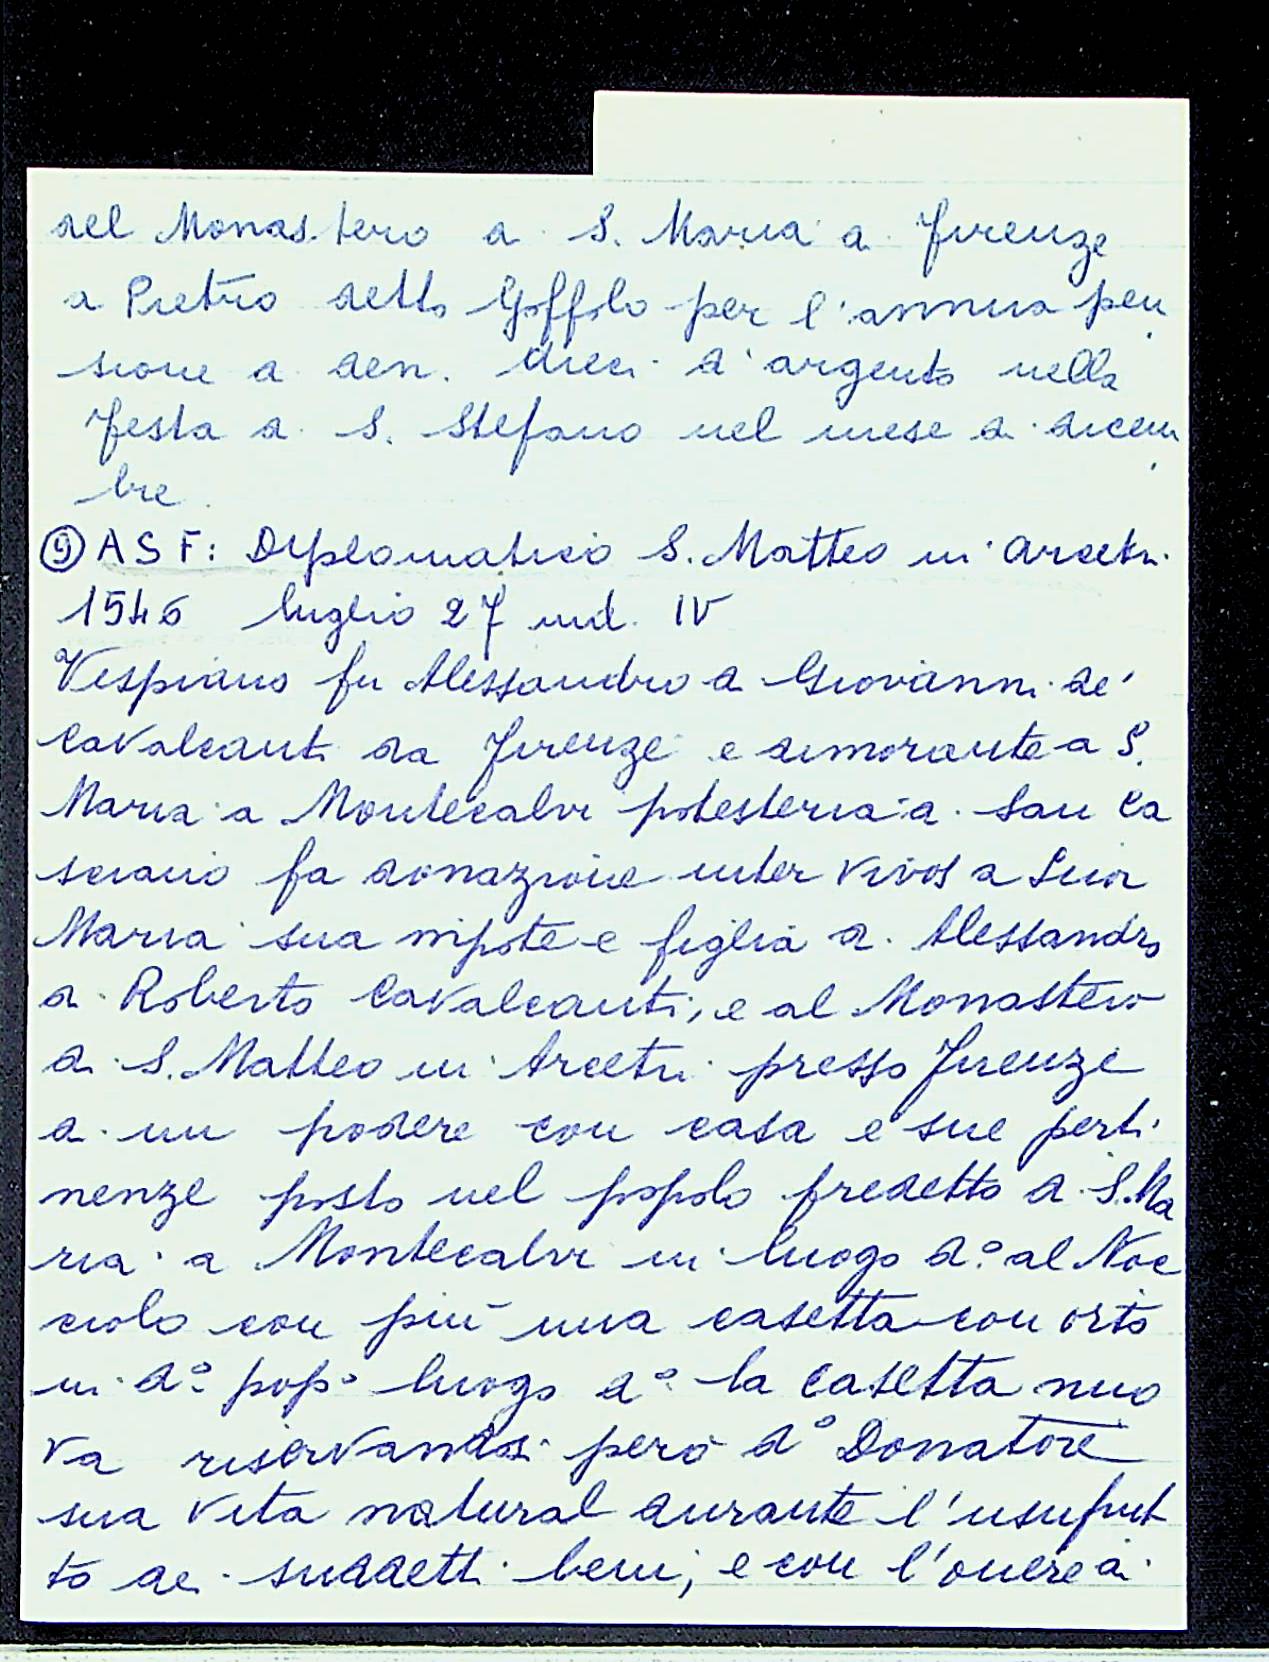 del Monastero di S. Maria di Firenze
a Pietro detto Goffolo per l'annua pen
sione di den. dieci d'argento nella
festa di S. Stefano nel mese di dicem
bre.
⑨ ASF: Diplomatico S. Matteo in Arcetri
1546 luglio 27 ind. IV
Vespiano fu Alessandro di Giovanni de'
Cavalcanti da Firenze e dimorante a S.
Maria a Montecalvi potesteria di San Ca
sciano fa donazione inter vivos a Suor
Maria sua nipote e figlia di Alessandro
di Roberto Cavalcanti, e al Monastero
di S. Matteo in Arcetri presso Firenze
di un podere con casa e sue perti
nenze posto nel popolo predetto di S. Ma
ria a Montecalvi in luogo d.º al Noc
ciolo con più una casetta con orto
in d.º pop.º luogo d.º la casetta nuo
va riservandosi però d.º Donatore
sua vita natural durante l'usufrut
to dei suddetti beni, e con l'onere di